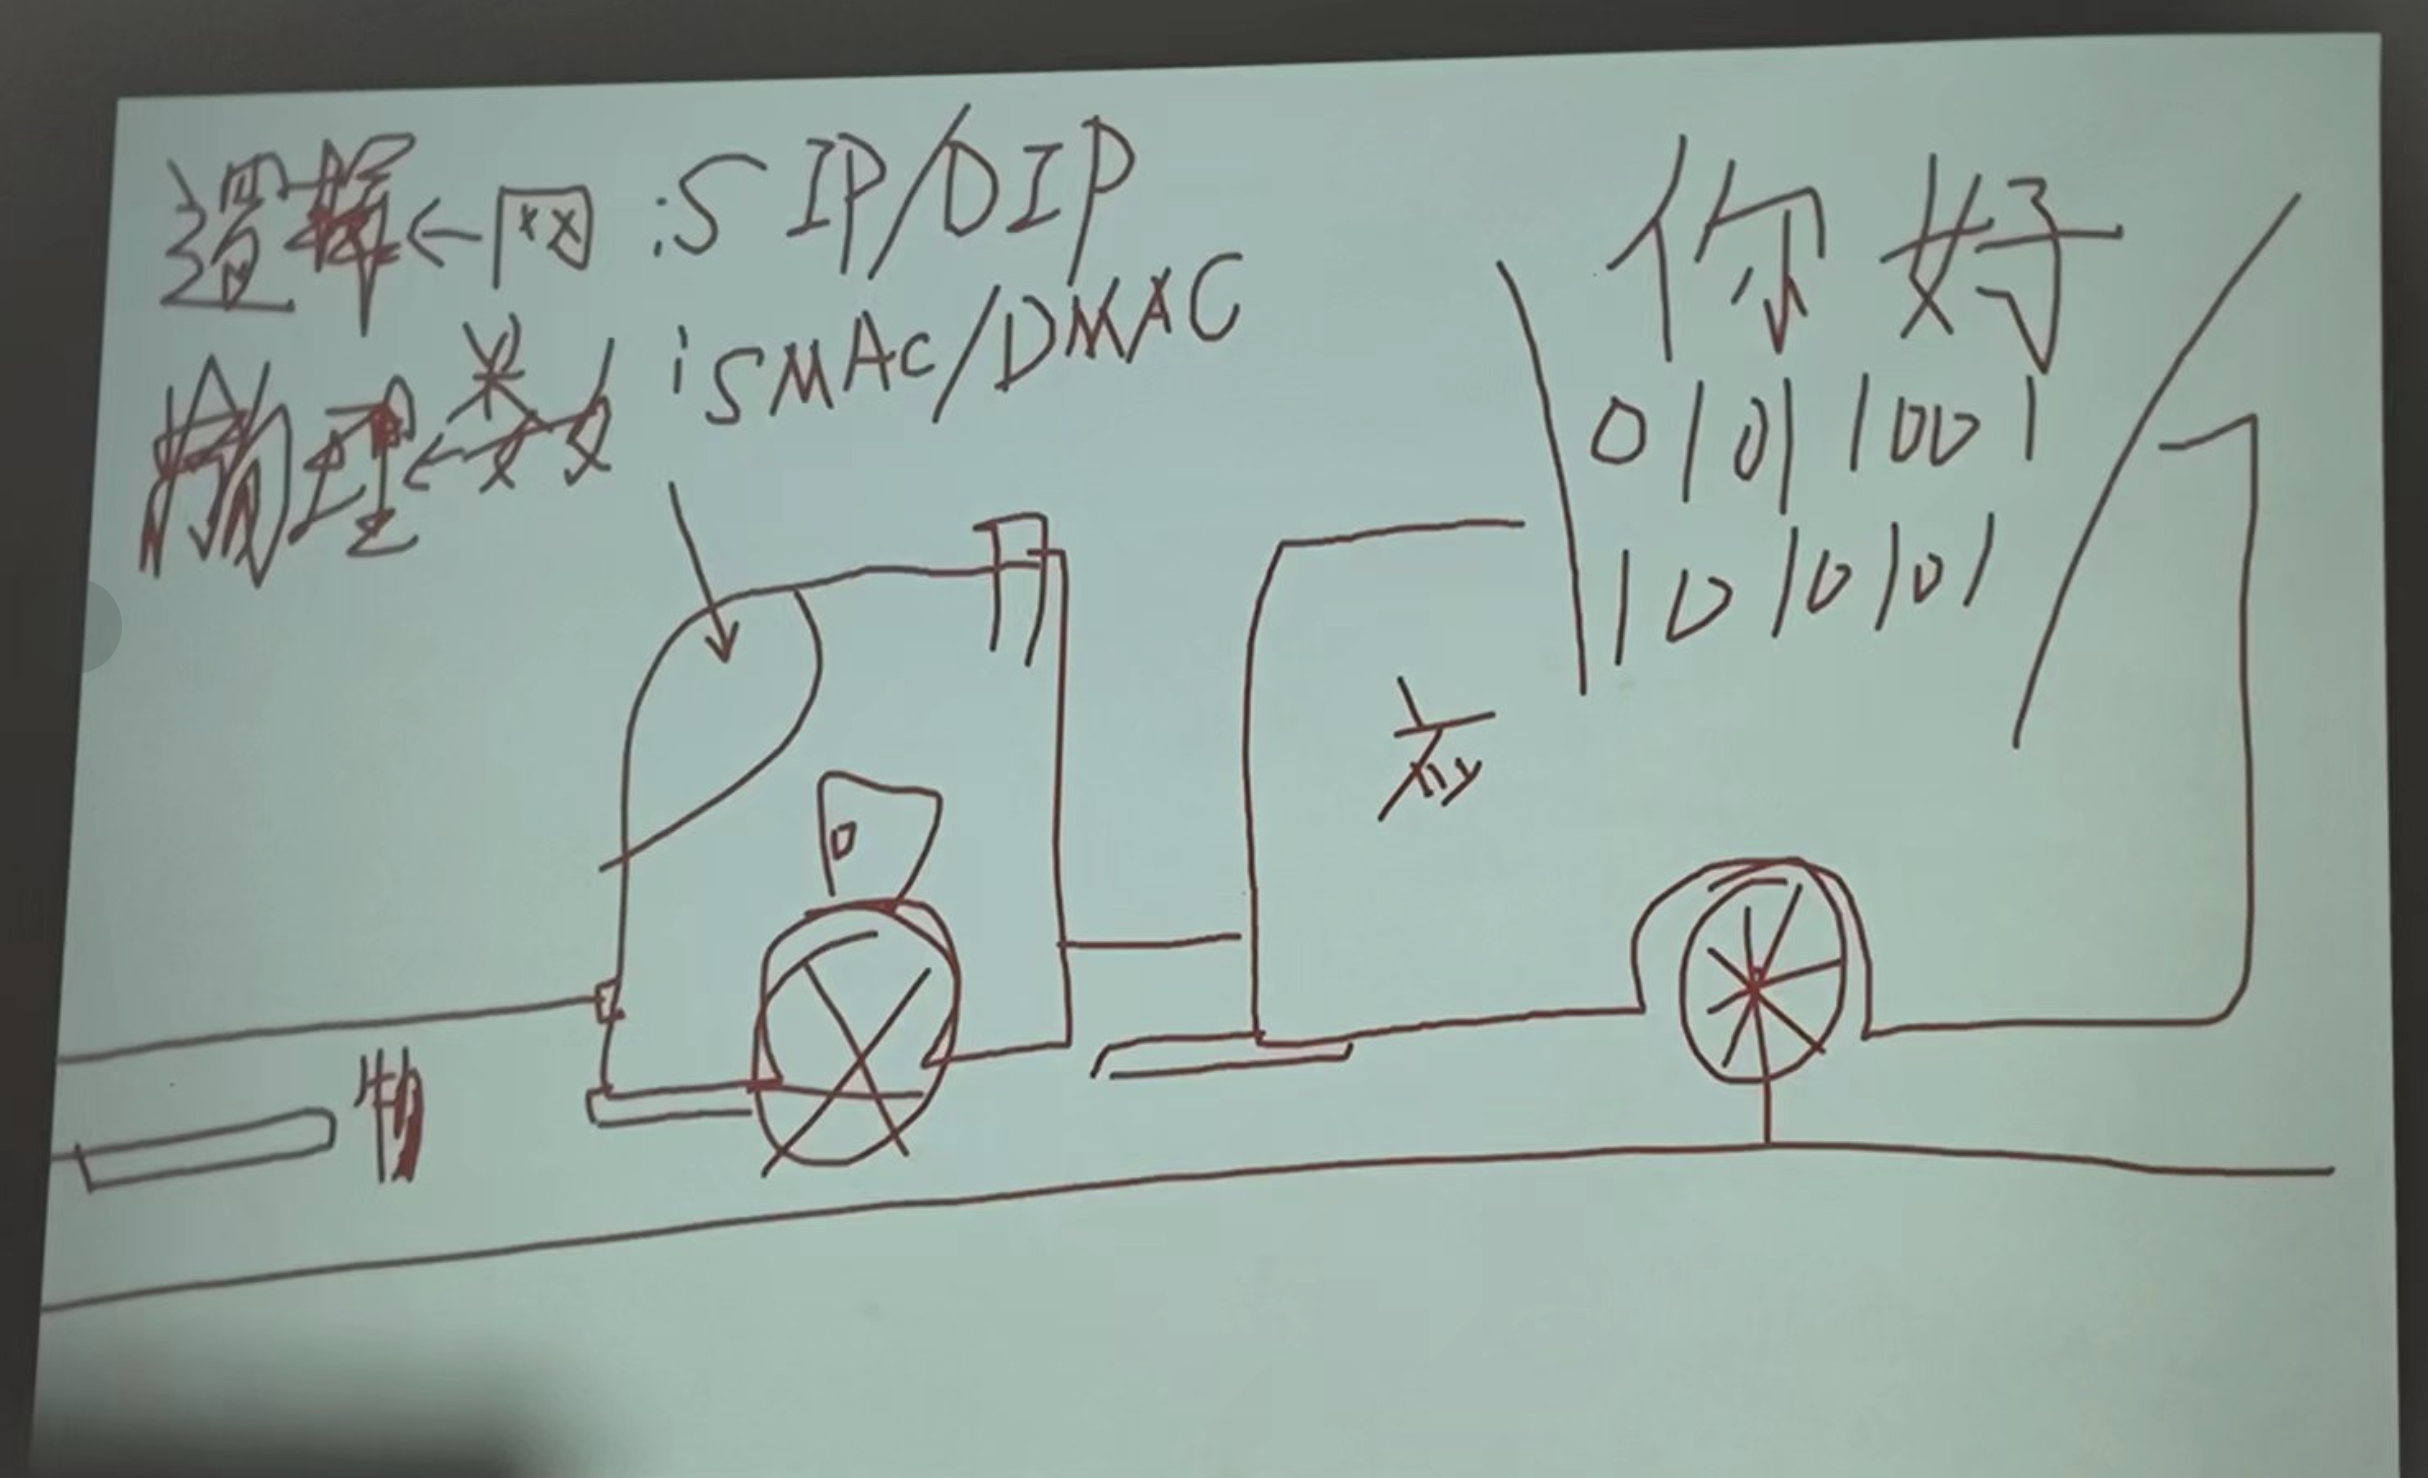 逻辑←网:SIP/DIP
物理←数:SMAC/DMAC
你好
01011001
1010101
物